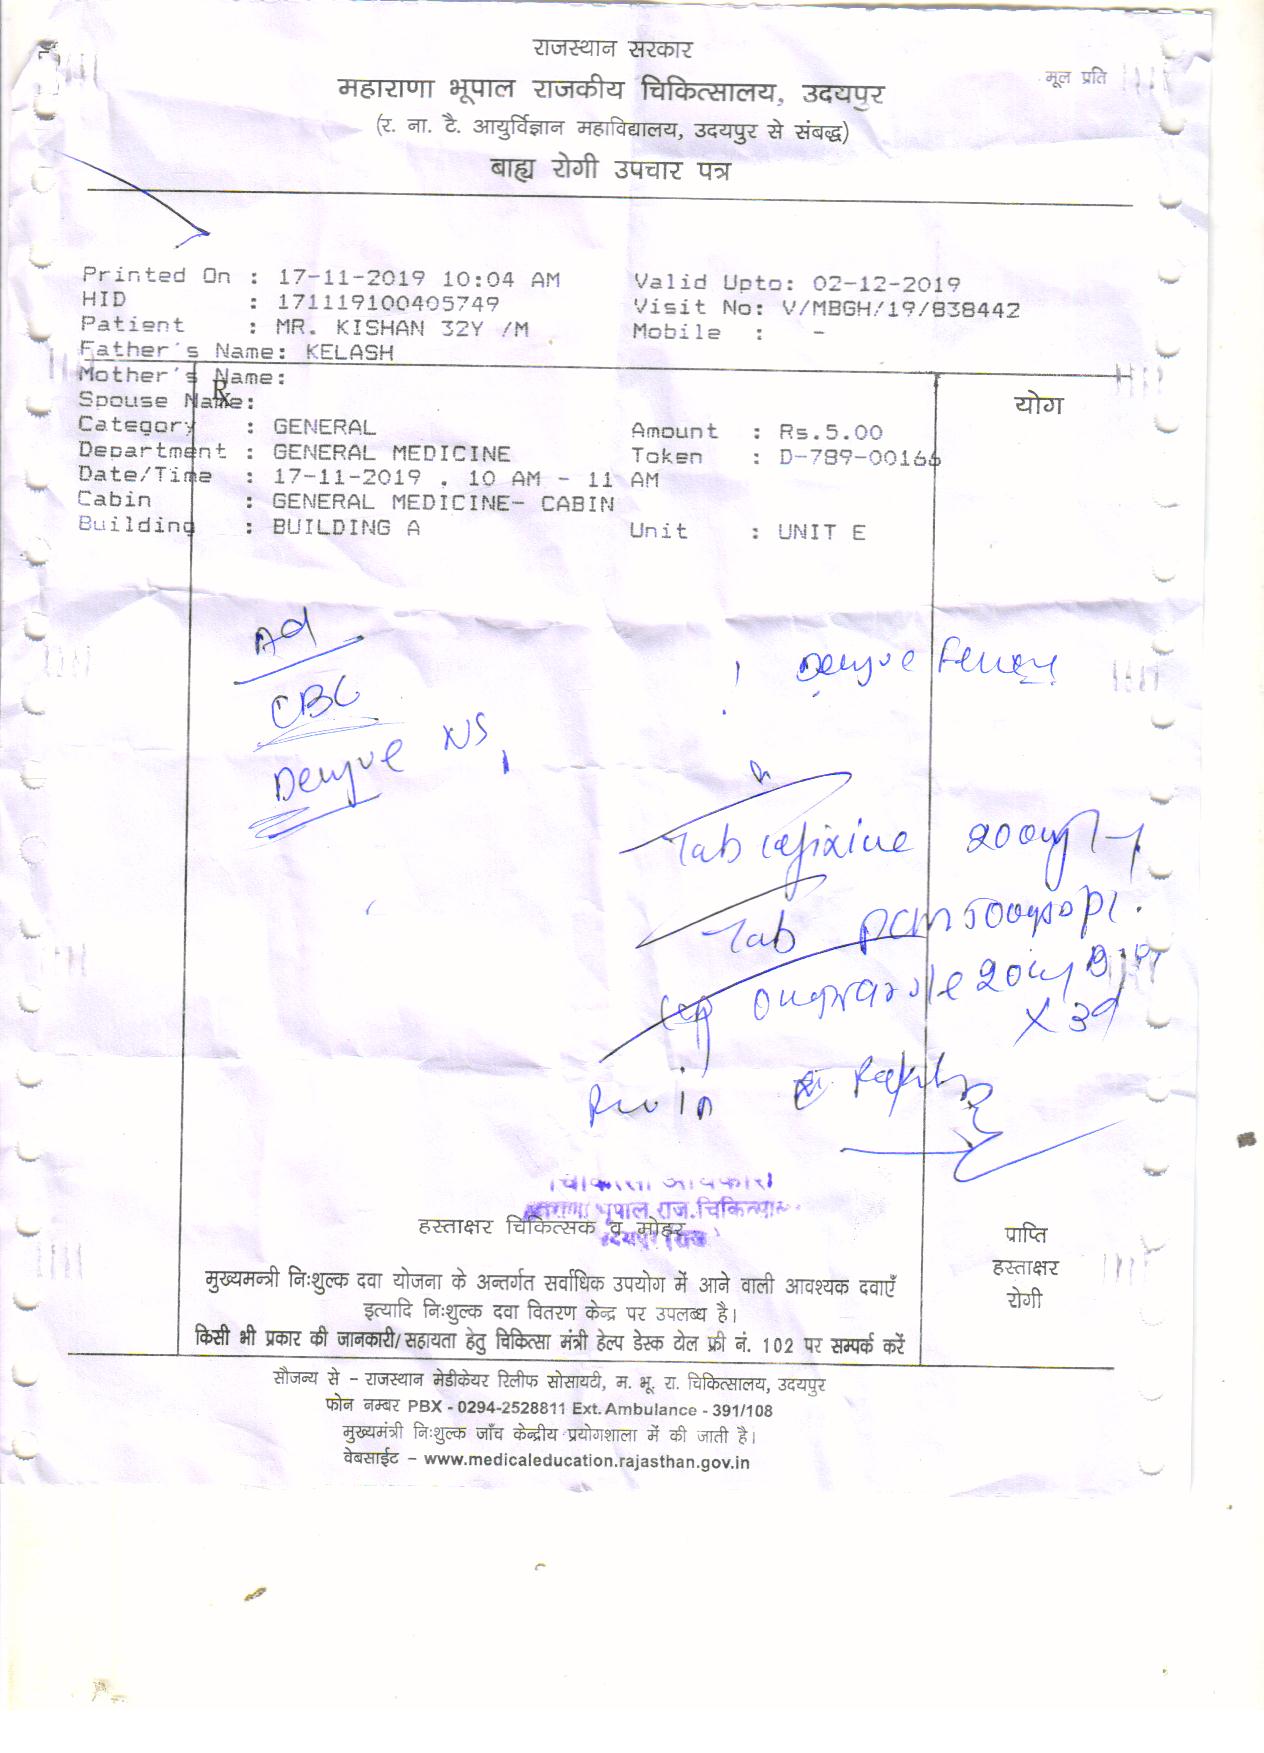 राजस्थान सरकार
मूल प्रति
महाराणा भूपाल राजकीय चिकित्सालय, उदयपुर
(र. ना. टै. आयुर्विज्ञान महाविद्यालय, उदयपुर से संबद्ध)
बाह्य रोगी उपचार पत्र
Printed On : 17-11-2019 10:04 AM Valid Upto: 02-12-2019
HID : 171119100405749 Visit No: V/MBGH/19/838442
Patient : MR. KISHAN 32Y /M Mobile : -
Father's Name: KELASH
Mother's Name:
℞
योग
Spouse Name:
Category : GENERAL Amount : Rs.5.00
Department : GENERAL MEDICINE Token : D-789-00166
Date/Time : 17-11-2019 , 10 AM - 11 AM
Cabin : GENERAL MEDICINE- CABIN
Building : BUILDING A Unit : UNIT E
Ad
CBC
Dengue NS1
Dengue Fever
Tab Cefixime 200mg
Tab PCM 500mg
Cap 20mg
x 3d
हस्ताक्षर चिकित्सक व मोहर
प्राप्ति
हस्ताक्षर
रोगी
मुख्यमन्त्री निःशुल्क दवा योजना के अन्तर्गत सर्वाधिक उपयोग में आने वाली आवश्यक दवाएँ
इत्यादि निःशुल्क दवा वितरण केन्द्र पर उपलब्ध है।
किसी भी प्रकार की जानकारी/सहायता हेतु चिकित्सा मंत्री हेल्प डेस्क टोल फ्री नं. 102 पर सम्पर्क करें
सौजन्य से – राजस्थान मेडीकेयर रिलीफ सोसायटी, म. भू. रा. चिकित्सालय, उदयपुर
फोन नम्बर PBX - 0294-2528811 Ext. Ambulance - 391/108
मुख्यमंत्री निःशुल्क जाँच केन्द्रीय प्रयोगशाला में की जाती है।
वेबसाईट – www.medicaleducation.rajasthan.gov.in